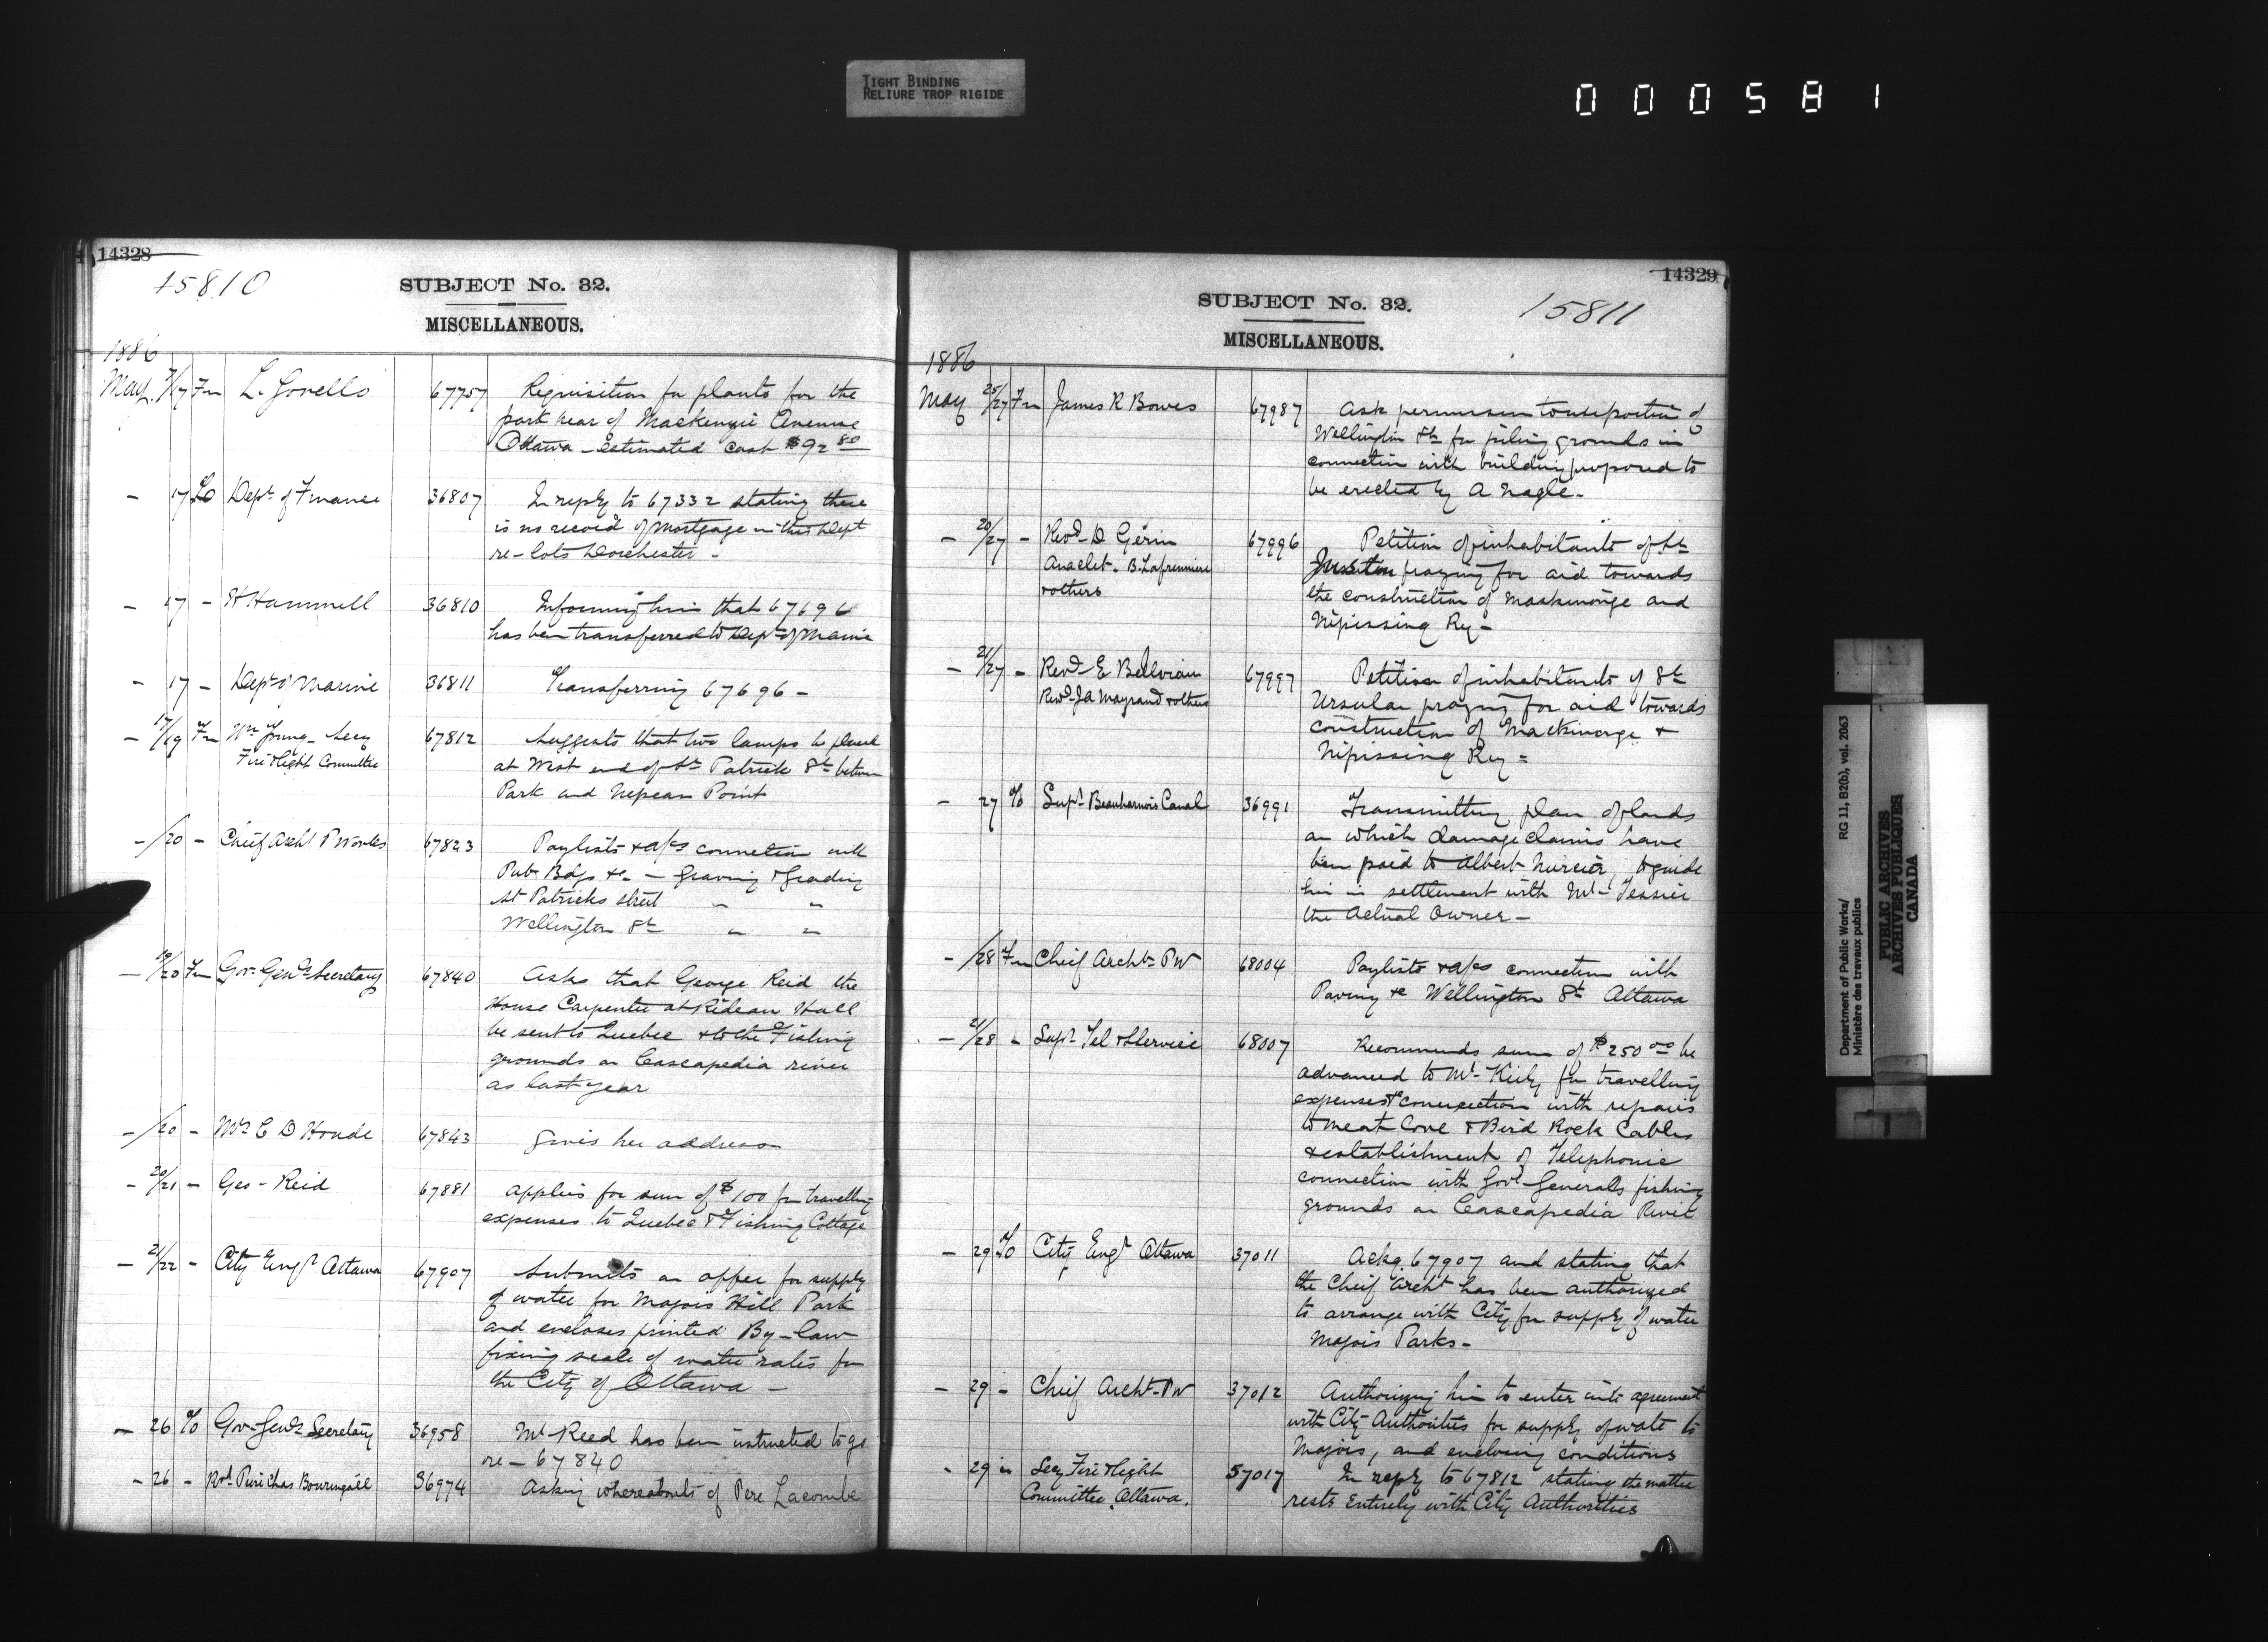 TIGHT BINDING
RELIURE TROP RIGIDE
000581
14328
15810
SUBJECT No. 32.
MISCELLANEOUS.
1886
May 7/17 Fm L. Gorells 67757 Requisition for plants for the
park rear of Mackenzie Avenue
Ottawa - Estimated cost $92 80
- 17 To Dept of Finance 36807 In reply to 67332 stating there
is no record of mortgage in this Dept
re - lots Dorchester -
- 17 - H Hammell 36810 Informing him that 67696
has been transferred to Dept of Marine
- 17 - Dept of Marine 36811 Transferring 67696 -
- 17/19 Fm Wm Young - Secy 67812 Suggests that two lamps be placed
Fire & Light Committee at West end of St Patrick St between
Park and Nepean Point
- /20 - Cheif Archt P Works 67823 Paylists & a/cs connection with
Pub Bdgs &c - Graving & Grading
St Patricks street " "
Wellington St " "
- 19/20 Fm Gov. Genls Secretary 67840 Asks that George Reid the
House Carpenter at Rideau Hall
be sent to Quebec & to the Fishing
grounds on Cascapedia river
as last year
- /20 - Mrs C D Houde 67843 Gives her address
- 20/21 - Geo - Reid 67881 applies for sum of $100 for travelling
expenses to Quebec & Fishing Cottage
- 21/22 - City Engr Ottawa 67907 Submits an offer for supply
of water for Majors Hill Park
and encloses printed By-law
fixing scale of water rates for
the City of Ottawa -
- 26 To Gov Genls Secretary 36958 Mr Reed has been instructed to go
re - 67840
- 26 - Rvd Pere Chas 36974 Asking whereabouts of Pere Lacombe
14329
15811
SUBJECT No. 32.
MISCELLANEOUS.
1886
May 25/27 Fm James R Bowes 67987 Ask permission to use portion of
Wellington St for piling grounds in
connection with building proposed to
be erected by A Nagle -
- 20/27 - Revd D Gérin 67996 Petition of inhabitants of St
Anaclet - B. Lafrenniere Justin praying for aid towards
& others the construction of Maskinongé and
Nipissing Ry -
- 21/27 - Revd E Bellvieau 67997 Petition of inhabitants of St
Revd JA Mayrand & others Ursular praying for aid towards
construction of Mackinonge &
Nipissing Ry =
- 27 To Supt Beauharnois Canal 36991 Transmitting plan of lands
on which damage claims have
been paid to Albert Mercier, to guide
him in settlement with Mr Tessier
the Actual Owner -
- /28 Fm Cheif Archt PW 68004 Paylists & a/cs connection with
Paving &c Wellington St Ottawa
- 21/28 - Supt Tel & Service 68007 Recommends sum of $250 00 be
advanced to Mr Kiely for travelling
expenses &c connection with repairs
to Meat Cove & Bird Rock Cables
& establishment of Telephonic
connection with Govr Generals fishing
grounds on Cascapedia River
- 29 To City Engr Ottawa 37011 Ackg. 67907 and stating that
the Cheif Archt has been authorized
to arrange with City for supply of water
Majors Parks -
- 29 - Cheif Archt - PW 37012 Authorizing him to enter into agreement
with City Authorities for supply of water to
Majors, and enclosing conditions
- 29 " Secy Fire & Light 37017 In reply to 67812 stating the matter
Committee, Ottawa. rests Entirely with City Authorities
Department of Public Works/
Ministère des travaux publics
RG 11, B2(b), vol. 2063
PUBLIC ARCHIVES
ARCHIVES PUBLIQUES
CANADA